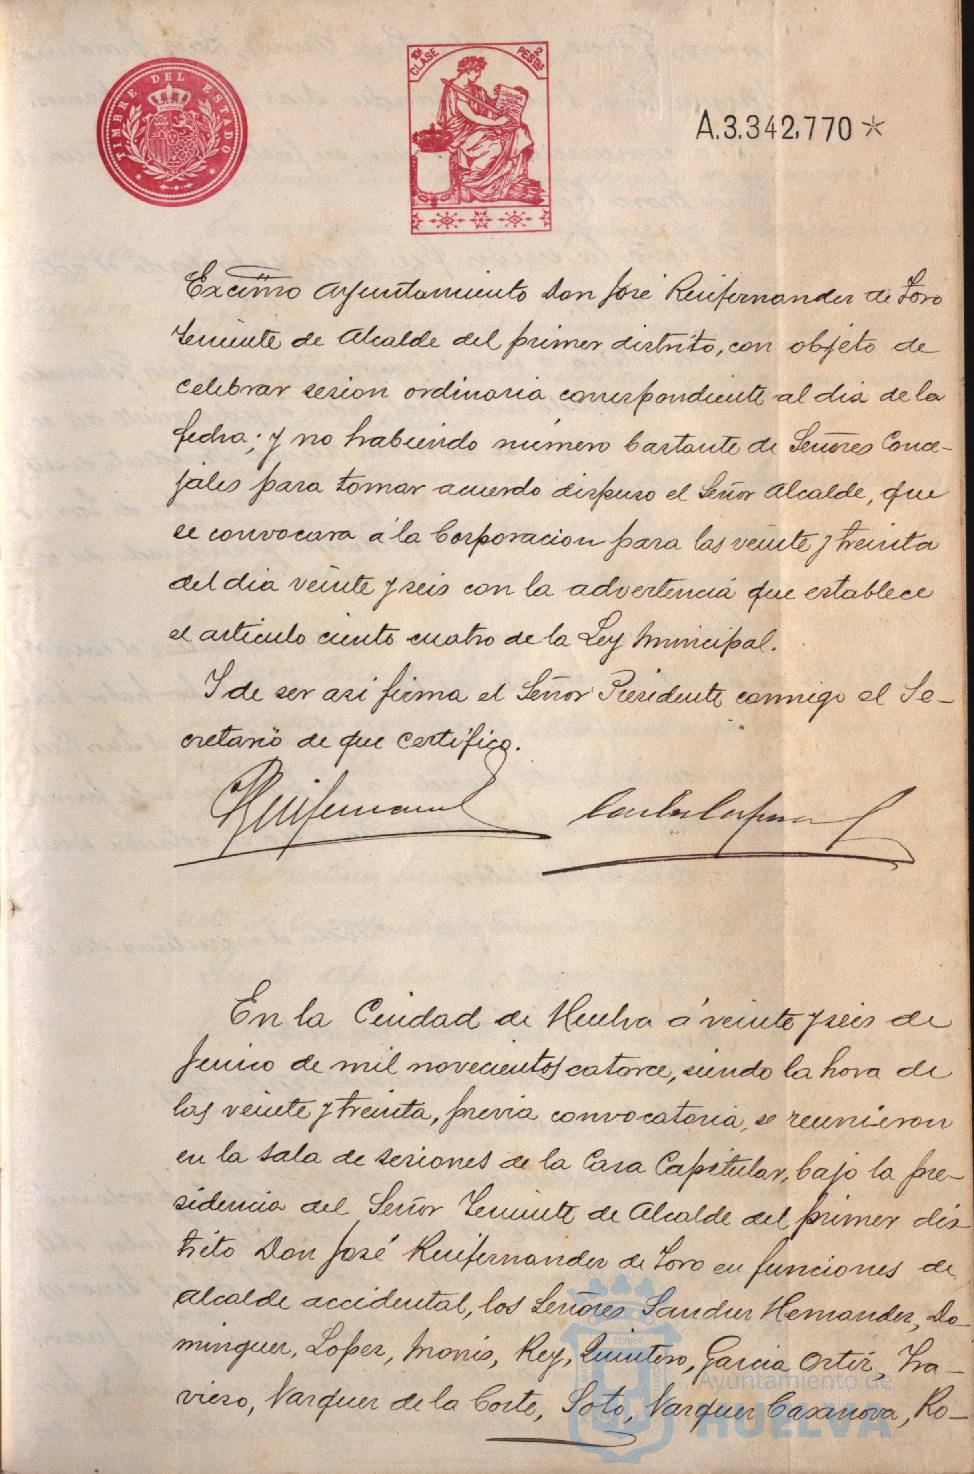 TIMBRE DEL ESTADO
10ª CLASE
2 PESTAS
A.3.342,770 *
Excmo Ayuntamiento Don José Ruifernandez de Toro
Teniente de Alcalde del primer distrito, con objeto de
celebrar sesion ordinaria correspondiente al dia de la
fecha; y no habiendo número bastante de Señores Conce-
jales para tomar acuerdo dispuso el Señor Alcalde, que
se convocara á la Corporacion para las veinte y treinta
del dia veinte y seis con la advertencia que establece
el articulo ciento cuatro de la Ley Municipal.
Y de ser asi firma el Señor Presidente conmigo el Se-
cretario de que certifico.
En la Ciudad de Huelva á veinte y seis de
Junio de mil novecientos catorce, siendo la hora de
las veinte y treinta, previa convocatoria, se reunieron
en la sala de sesiones de la Casa Capitular, bajo la pre-
sidencia del Señor Teniente de Alcalde del primer dis-
trito Don José Ruifernandez de Toro en funciones de
Alcalde accidental, los Señores Sanchez Hernandez, Do-
minguez, Lopez, Monis, Rey, Quintero, Garcia Ortiz, Tra-
vieso, Vazquez de la Corte, Soto, Vazquez Casanova, Ro-
Ayuntamiento de
HUELVA